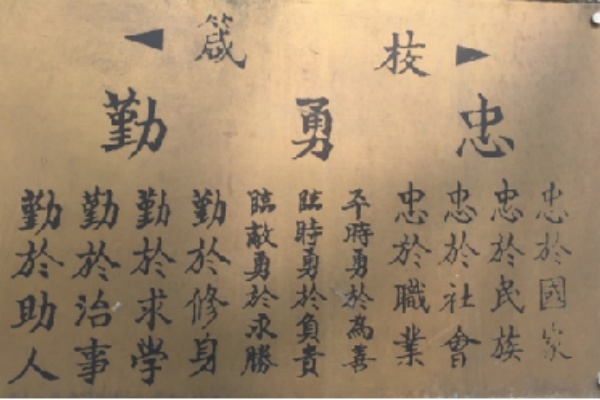 校箴
忠勇勤
忠於國家
忠於民族
忠於社會
忠於職業
平時勇於為善
臨時勇於負責
臨敵勇於求勝
勤於修身
勤於求學
勤於治事
勤於助人